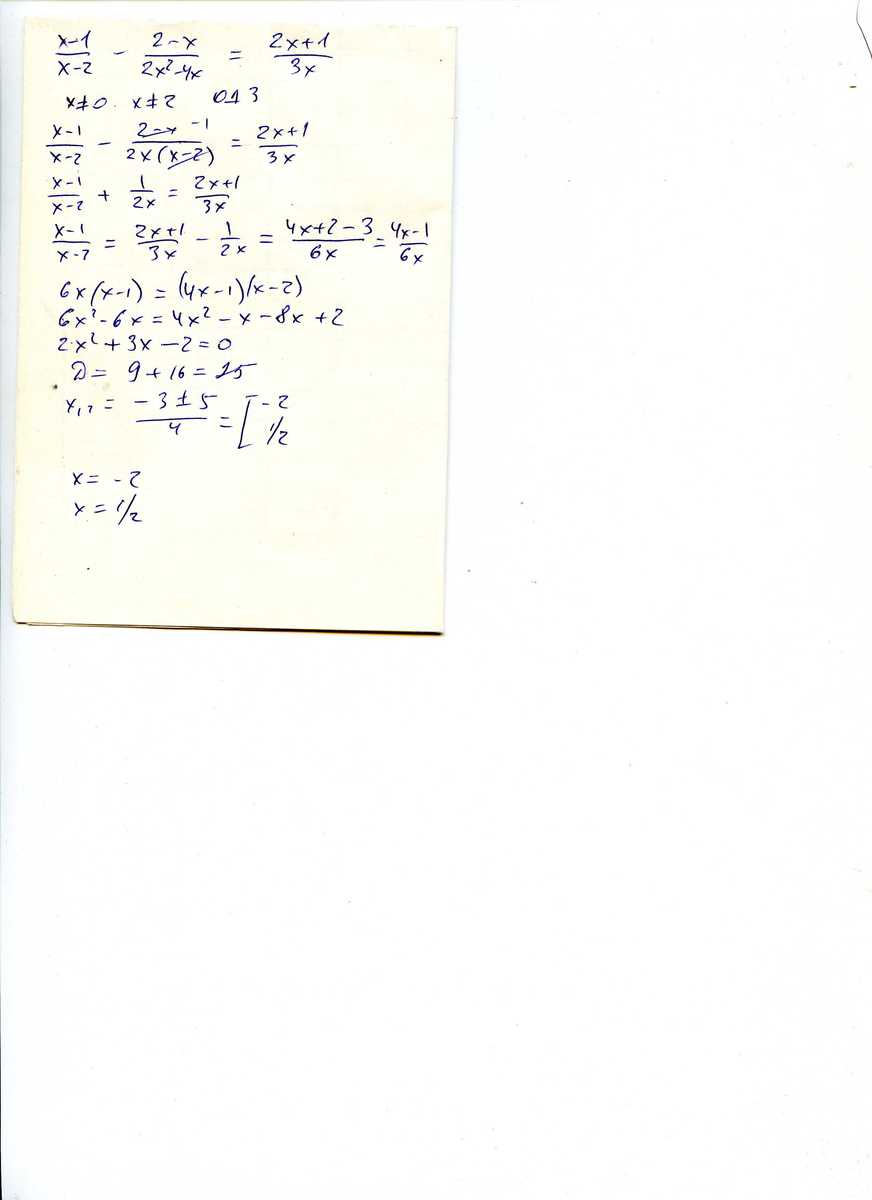 x-1/x-2 - 2-x/2x²-4x = 2x+1/3x
x≠0. x≠2 ОДЗ
x-1/x-2 - 2-x -1/2x(x-2) = 2x+1/3x
x-1/x-2 + 1/2x = 2x+1/3x
x-1/x-2 = 2x+1/3x - 1/2x = 4x+2-3/6x = 4x-1/6x
6x(x-1) = (4x-1)(x-2)
6x²-6x = 4x²-x-8x+2
2x²+3x-2=0
D= 9+16=25
x₁,₂ = -3±5/4 = [-2 1/2
x= -2
x = 1/2